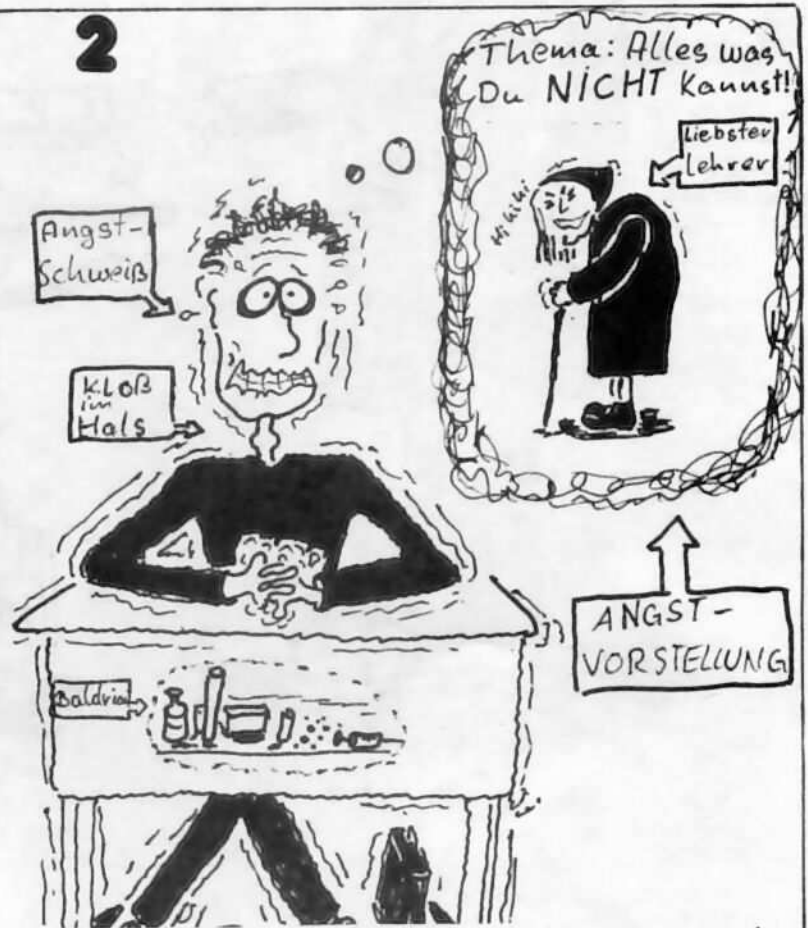 2
Thema: Alles was
Du NICHT kannst!
Liebster
Lehrer
Hi hihi
Angst-
Schweiß
KLOß
im
Hals
ANGST-
VORSTELLUNG
Baldrian